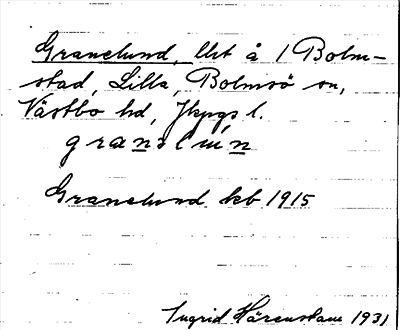 Granelund, lht å 1 Bolm-
stad, Lilla, Bolmsö sn,
Västbo hd, Jkpgs l.
Granelund kb 1915
Ingrid Härenstam 1931